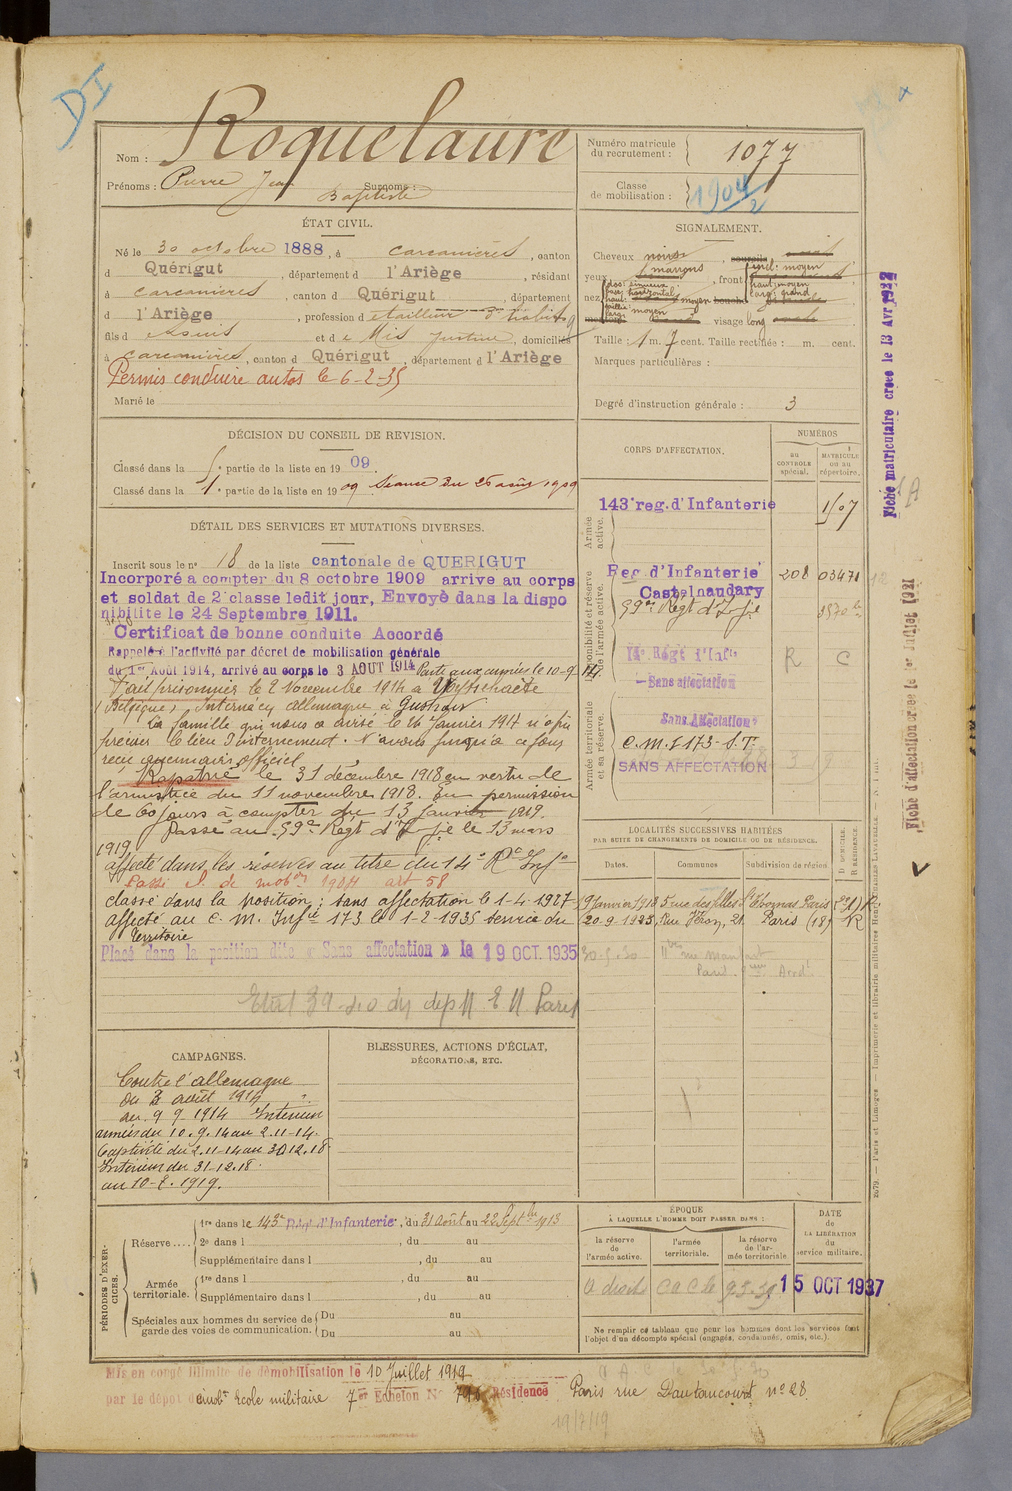 DI
Nom : Roquelaure
Prénoms : Pierre Jean Surnoms :
Baptiste
Numéro matricule
du recrutement : 1077
Classe
de mobilisation : 1904/2
ÉTAT CIVIL.
Né le 30 octobre 1888, à Carcanières, canton
d Quérigut, département d l'Ariège, résidant
à Carcanières, canton d Quérigut, département
d l'Ariège, profession d tailleur d'habits
fils d et de Mis Justine, domiciliés
à Carcanières, canton d Quérigut, département d l'Ariège
Permis conduire autos le 6-2-35
Marié le
SIGNALEMENT.
Cheveux noirs
yeux marrons, front incl: moyen
haut: moyen
larg: grand
nez dos: sinueux
base: horizontal
moyen
visage long
Taille : 1 m. 7 cent. Taille rectifiée : m. cent.
Marques particulières :
Degré d'instruction générale : 3
DÉCISION DU CONSEIL DE REVISION.
Classé dans la partie de la liste en 1909
Classé dans la 1e partie de la liste en 1909 Séance du 26 août 1909
DÉTAIL DES SERVICES ET MUTATIONS DIVERSES.
Inscrit sous le n° 18 de la liste cantonale de QUERIGUT
Incorporé a compter du 8 octobre 1909 arrive au corps
et soldat de 2e classe ledit jour, Envoyé dans la dispo
nibilite le 24 Septembre 1911.
Certificat de bonne conduite Accordé
Rappelé à l'activité par décret de mobilisation générale
du 1er Août 1914, arrivé au corps le 3 AOUT 1914 Parti aux armées le 10-9-14.
Fait prisonnier le 2 Novembre 1914 à Wytschaete
(Belgique) Interné en Allemagne à Gustrow
La famille qui nous a avisé le 24 Janvier 1914 n'a pu
préciser le lieu d'internement. N'avons jusqu'à ce jour
reçu aucun avis officiel
Rapatrié le 31 décembre 1918 en vertu de
l'armistice du 11 novembre 1918. En permission
de 60 jours à compter du 13 Janvier 1919.
Passé au 59e Regt d'Infie le 13 mars
1919
affecté dans les réserves au titre du 14e Rt Infie
Passé Cl. de mobon 1904 art 58
classé dans la position : sans affectation le 1-4-1927
affecté au C. M. Infie 173 le 1-2-1935 service du
Territoire
Placé dans la position dite « Sans affectation » le 19 OCT. 1935
CORPS D'AFFECTATION.
NUMÉROS
AU CONTRÔLE spécial.
MATRICULE ou au répertoire.
Armée active.
143e reg. d'Infanterie 1507
Disponibilité et réserve de l'armée active.
Reg. d'Infanterie 208 03471
Castelnaudary
59e Regt d'Infie
14e Régt d'Infie R C
Sans affectation
Armée territoriale et sa réserve.
Sans Affectation
C.M.I 173-S.T.
SANS AFFECTATION
LOCALITÉS SUCCESSIVES HABITÉES
PAR SUITE DE CHANGEMENTS DE DOMICILE OU DE RÉSIDENCE.
Dates. Communes Subdivision de région D. DOMICILE. R. RÉSIDENCE.
5 rue des filles St Thomas Paris R
20.9.1925, Rue Véron, 21. Paris (18) R
30-5-30
Paris Arrdt
CAMPAGNES.
Contre l'Allemagne
du 3 août 1914
au 9 9 1914 Intérieur
armées du 10.9.14 au 2.11-14.
Captivité du 2.11-14 au 30.12.18
Intérieur du 31-12.18.
au 10-7.1919.
BLESSURES, ACTIONS D'ÉCLAT,
DÉCORATIONS, ETC.
PÉRIODES D'EXERCICES.
Réserve....
1re dans le 143e Régt d'Infanterie, du 31 Août au 22 Septbre 1913
2e dans l , du au
Supplémentaire dans l , du au
Armée territoriale.
1re dans l , du au
Supplémentaire dans l , du au
Spéciales aux hommes du service de
garde des voies de communication.
Du au
Du au
ÉPOQUE
À LAQUELLE L'HOMME DOIT PASSER DANS :
la réserve de l'armée active.
l'armée territoriale.
la réserve de l'armée territoriale
DATE de LA LIBÉRATION du service militaire.
15 OCT 1937
Ne remplir ce tableau que pour les hommes dont les services font
l'objet d'un décompte spécial (engagés, condamnés, omis, etc.).
Mis en congé illimité de démobilisation le 10 Juillet 1919
par le dépot démobr Ecole militaire 7er Echelon N° Résidence Paris rue Dautancourt n° 28
19/7/19
Fiche matriculaire créée le 13 Avr 1922
Fiche d'affectation créée le 1er Juillet 1921